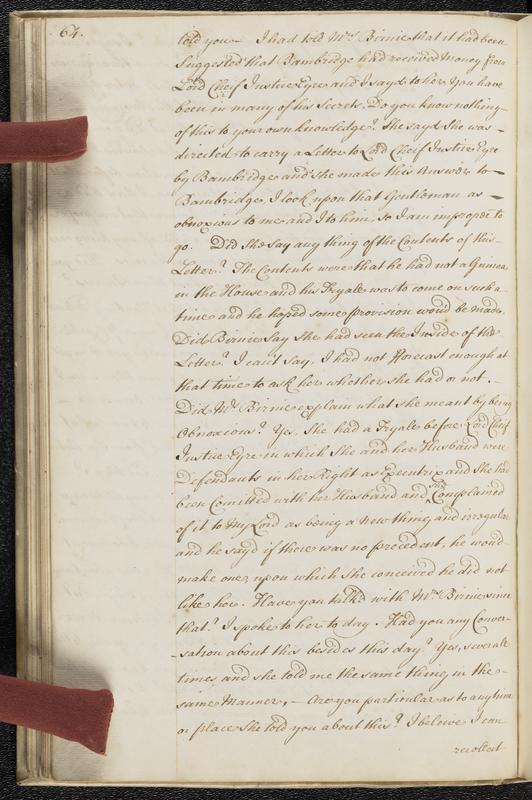 64.
told you — I had told Mrs. Birnie that it had been
Suggested that Bambridge had received Money from
Lord Cheif Justice Eyre and I sayd to her You have
been in many of his Secrets. Do you know nothing
of this to your own knowledge? She sayd She was
directed to carry a Letter to Lord Cheif Justice Eyre
by Bambridge and she made this Answer to
Bambridge, I look upon that Gentleman as
obnoxious to me and I to him, so I am improper to
go. Did She Say any thing of the Contents of this
Letter? The Contents were that he had not a Guinea
in the House and his Tryale was to come on such a
time and he hoped some provision woud be made.
Did Birnie Say She had seen the Inside of the
Letter? I can't say, I had not Forecast enough at
that time to ask her whether she had or not. —
Did Mrs. Birnie explain what she meant by being
Obnoxious? Yes, She had a Tryale before Lord Cheif
Justice Eyre in which She and her Husband were
Defendants in her Right as Executrix and She had
been Comitted with her Husband and She Complained
of it to My Lord as being a New thing and irregular
and he sayd if there was no precedent, he woud
make one, upon which She conceived he did not
like her. Have you talk'd with Mrs. Birnie since
that? I spoke to her to day. Had you any Conver-
-sation about this besides this day? Yes, severale
times, and she told me the same thing in the
same Manner, — Are you particular as to any time
or place She told you about this? I beleive I can
recollect